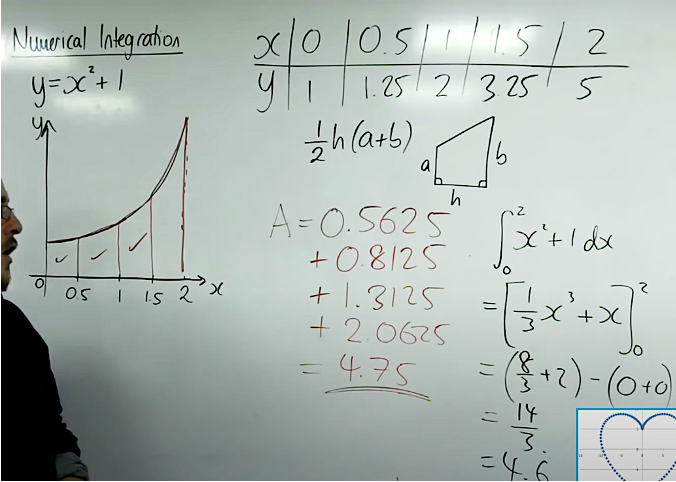 Numerical Integration
y=x²+1
x | 0 | 0.5 | 1 | 1.5 | 2
y | 1 | 1.25 | 2 | 3.25 | 5
½h(a+b)
a
b
h
y
0 0.5 1 1.5 2 x
A=0.5625
+0.8125
+1.3125
+2.0625
=4.75
∫₀² x²+1 dx
=[⅓x³+x]₀²
=(8/3+2)-(0+0)
=14/3
=4.6